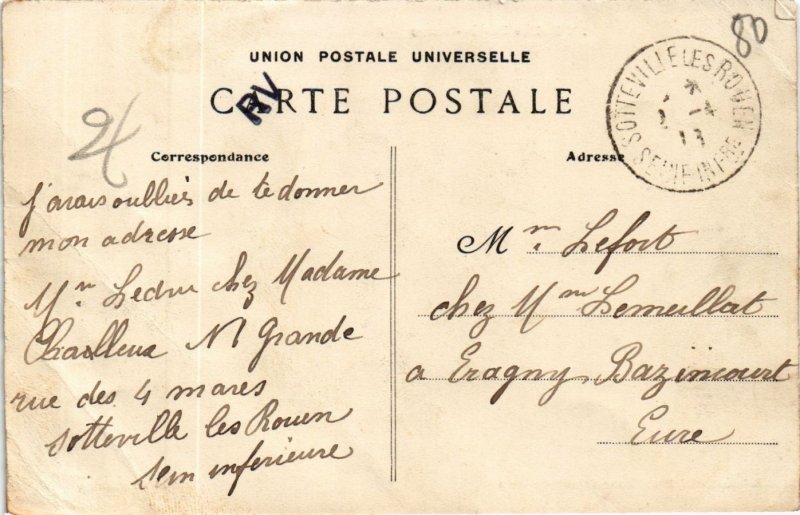 80
UNION POSTALE UNIVERSELLE
RV
CARTE POSTALE
SOTTEVILLE LES ROUEN
SEINE-INFRE
24
Correspondance
Adresse
j'avais oubliés de te donner
mon adresse
Mr Leduc chez Madame
N 1 Grande
rue des 4 mares
Sotteville les Rouen
sein inferieure
Mr. Lefort
chez Mme Lemeillat
a Eragny Bazincourt
Eure